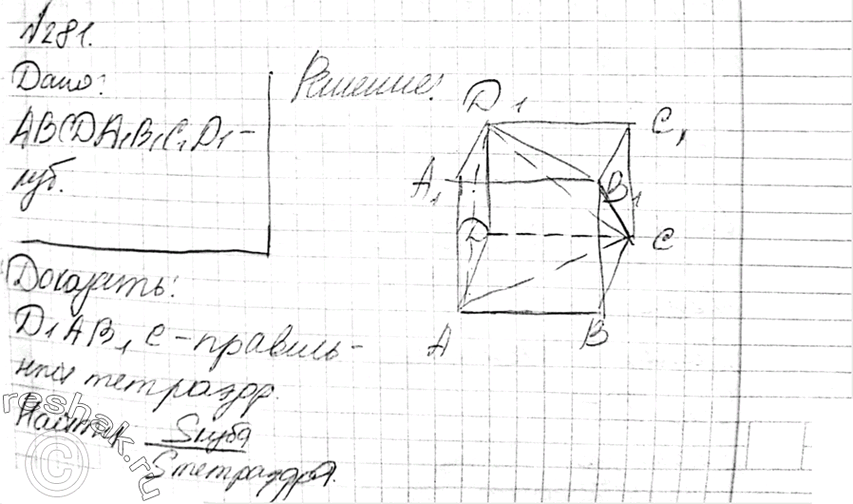 №281.
Дано:
Решение:
ABCDA₁B₁C₁D₁ –
куб.
Доказать:
D₁AB₁C – правиль-
ный тетраэдр.
Найти Sкуба
Sтетраэдра.
D₁
C₁
A₁
B₁
D
C
A
B
reshak.ru
©